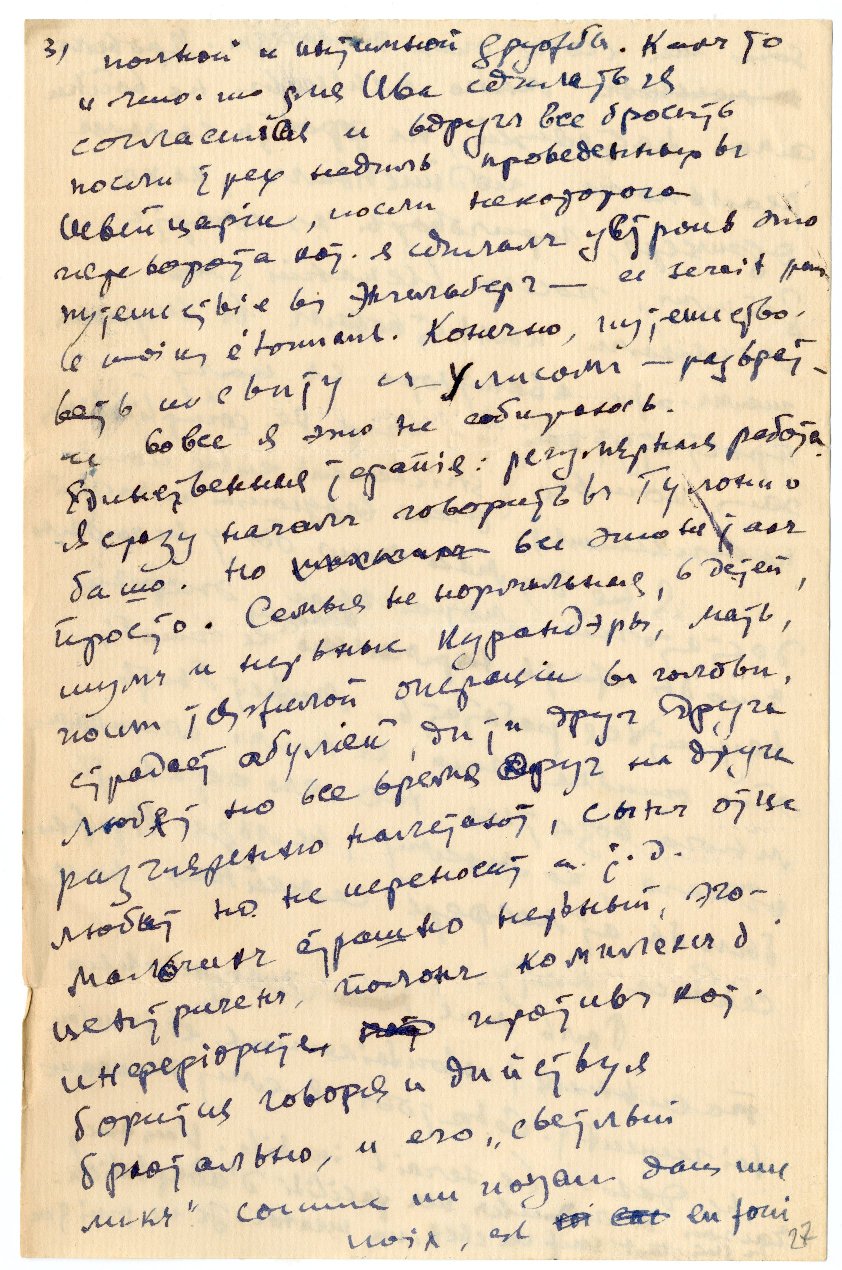 3) полной и интимной дружбы. Какъ то
и что-то для Ивы сдѣлать я
согласился и вдругъ все бросить
послѣ трех недѣль проведенныхъ въ
Швейцаріи, послѣ некоторого
переворота кот. я сдѣлалъ устроив это
путешествіе въ Энгельбергъ — ce serait pour
le moins étonnant. Конечно, путешество-
вать по свѣту съ Улисомъ — развратъ
и вовсе я это не собираюсь.
Единственная терапія: регулярная работа.
Я сразу началъ говорить въ Тулонъ о
башо. Но все это не такъ
просто. Семья не нормальная, 6 детей,
шумъ и нервные Курандэры, мать,
послѣ тяжелой операціи въ головѣ,
страдает абуліей, дѣти друг друга
любят но все время друг на друга
разъяренно налетают, сынъ отца
любит но не переносит и т.д.
Мальчикъ страшно нервный, эго-
центриченъ, полонъ комплекса d'
инферіорите, противъ кот.
борится говоря и дѣйствуя
брютально, и его „светлый
ликъ" comme un noyau dans une
noix, est en foui
27